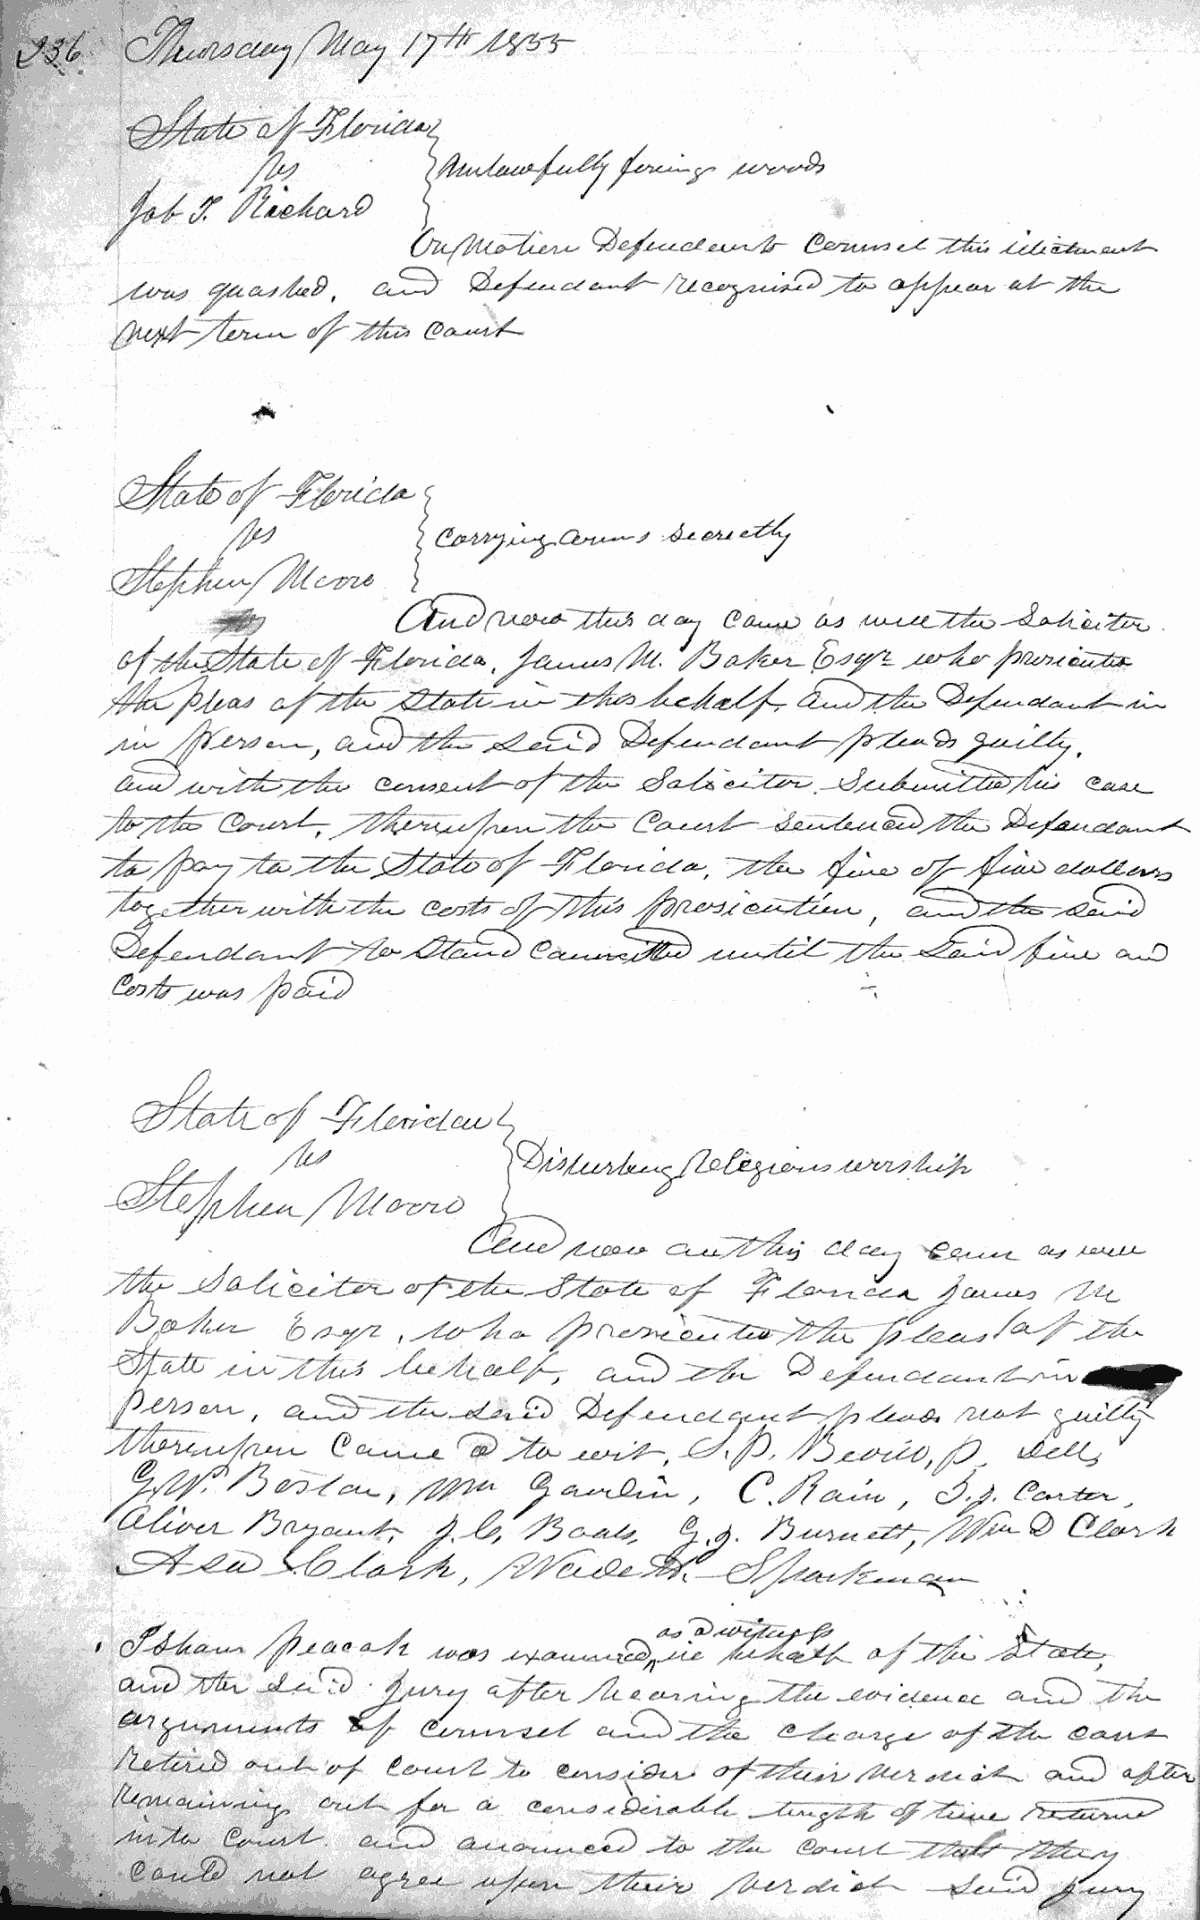 236 Thursday May 17th 1855
State of Florida
vs
Unlawfully fireing woods
Job T. Richard
On Motion Defendants Counsel this idictment
was quashed, and Defendant recognised to appear at the
next term of this Court
State of Florida
vs
Carrying arms secretly
Stephen Moore
And now this day came as well the Soliciter
of the State of Florida, James M. Baker Esqr who prosicutes
the pleas of the State in this behalf, and the Defendant in
in person, and the said Defendant pleads guilty,
and with the consent of the Soliciter Submitted his case
to the Court, thereupon the Court sentenced the Defendant
to pay to the State of Florida, the fine of five dollars
together with the costs of this prosicution, and the said
Defendant to stand committed until the said fine and
costs was paid
State of Florida
vs
Disturbing Religious worship
Stephen Moore
And now on this day came as well
the Soliciter of the State of Florida James M
Baker Esqr, who prosicutes the pleas of the
State in this behalf, and the Defendant in
person, and the said Defendant pleads not guilty
thereupon came a to wit, S. P. Bevill, P. Dell,
G. W. Boston, Wm Gaurlin, C. Rain, T. J. Carter,
Oliver Bryant, J. C. Boals, G. J. Burnett, Wm D Clark
Asa Clark, Wade H. Sparkman
as a witness
Isham Peacok was examined in behalf of the State,
and the said Jury after hearing the evidence and the
arguments of counsel and the charge of the court
retired out of Court to consider of their verdict and after
remaining out for a considerable length of time returned
into Court and anounced to the court that they
could not agree upon their verdict said jury